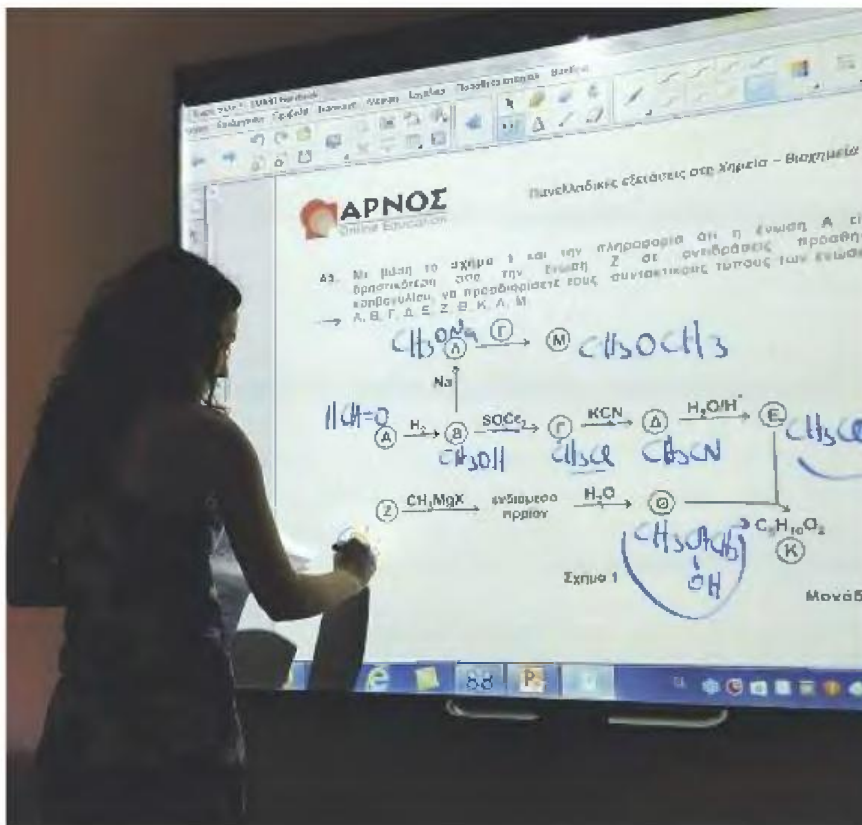 ΑΡΝΟΣ
Online Education
Πανελλαδικές εξετάσεις στη Χημεία – Βιοχημεία
Δ3. Με βάση το σχήμα 1 και την πληροφορία ότι η ένωση Α εί
δραστικότερη από την ένωση Ζ σε αντιδράσεις προσθή
καρβονυλίου, να προσδιορίσετε τους συντακτικούς τύπους των ενώσε
→ Α, Β, Γ, Δ, Ε, Ζ, Θ, Κ, Λ, Μ.
CH3ONa Λ Γ Μ CH3OCH3
Na
HCH=O
Α H2 Β SOCl2 Γ KCN Δ H2O/H+ Ε
CH3OH CH3Cl CH3CN
Ζ CH3MgX ενδιάμεσο προϊόν H2O Θ C5H10O2
Κ
CH3CHCH3
OH
Σχήμα 1
Μονάδ